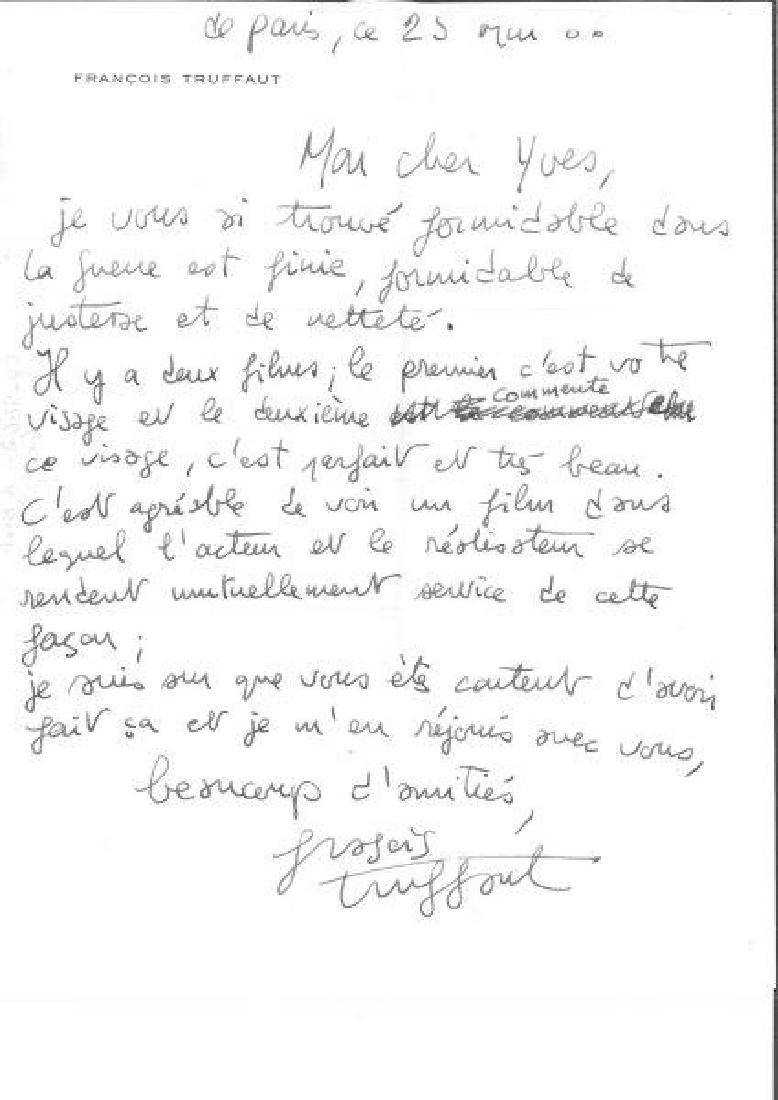 de paris, ce 25 mai ..
FRANÇOIS TRUFFAUT
Mon cher Yves,
je vous ai trouvé formidable dans
la guerre est finie, formidable de
justesse et de netteté.
Il y a deux films ; le premier c'est votre
visage et le deuxième commente
ce visage, c'est parfait et très beau.
C'est agréable de voir un film dans
lequel l'acteur et le réalisateur se
rendent mutuellement service de cette
façon ;
je suis sur que vous êtes content d'avoir
fait ça et je m'en réjouis avec vous,
beaucoup d'amitiés,
françois
truffaut